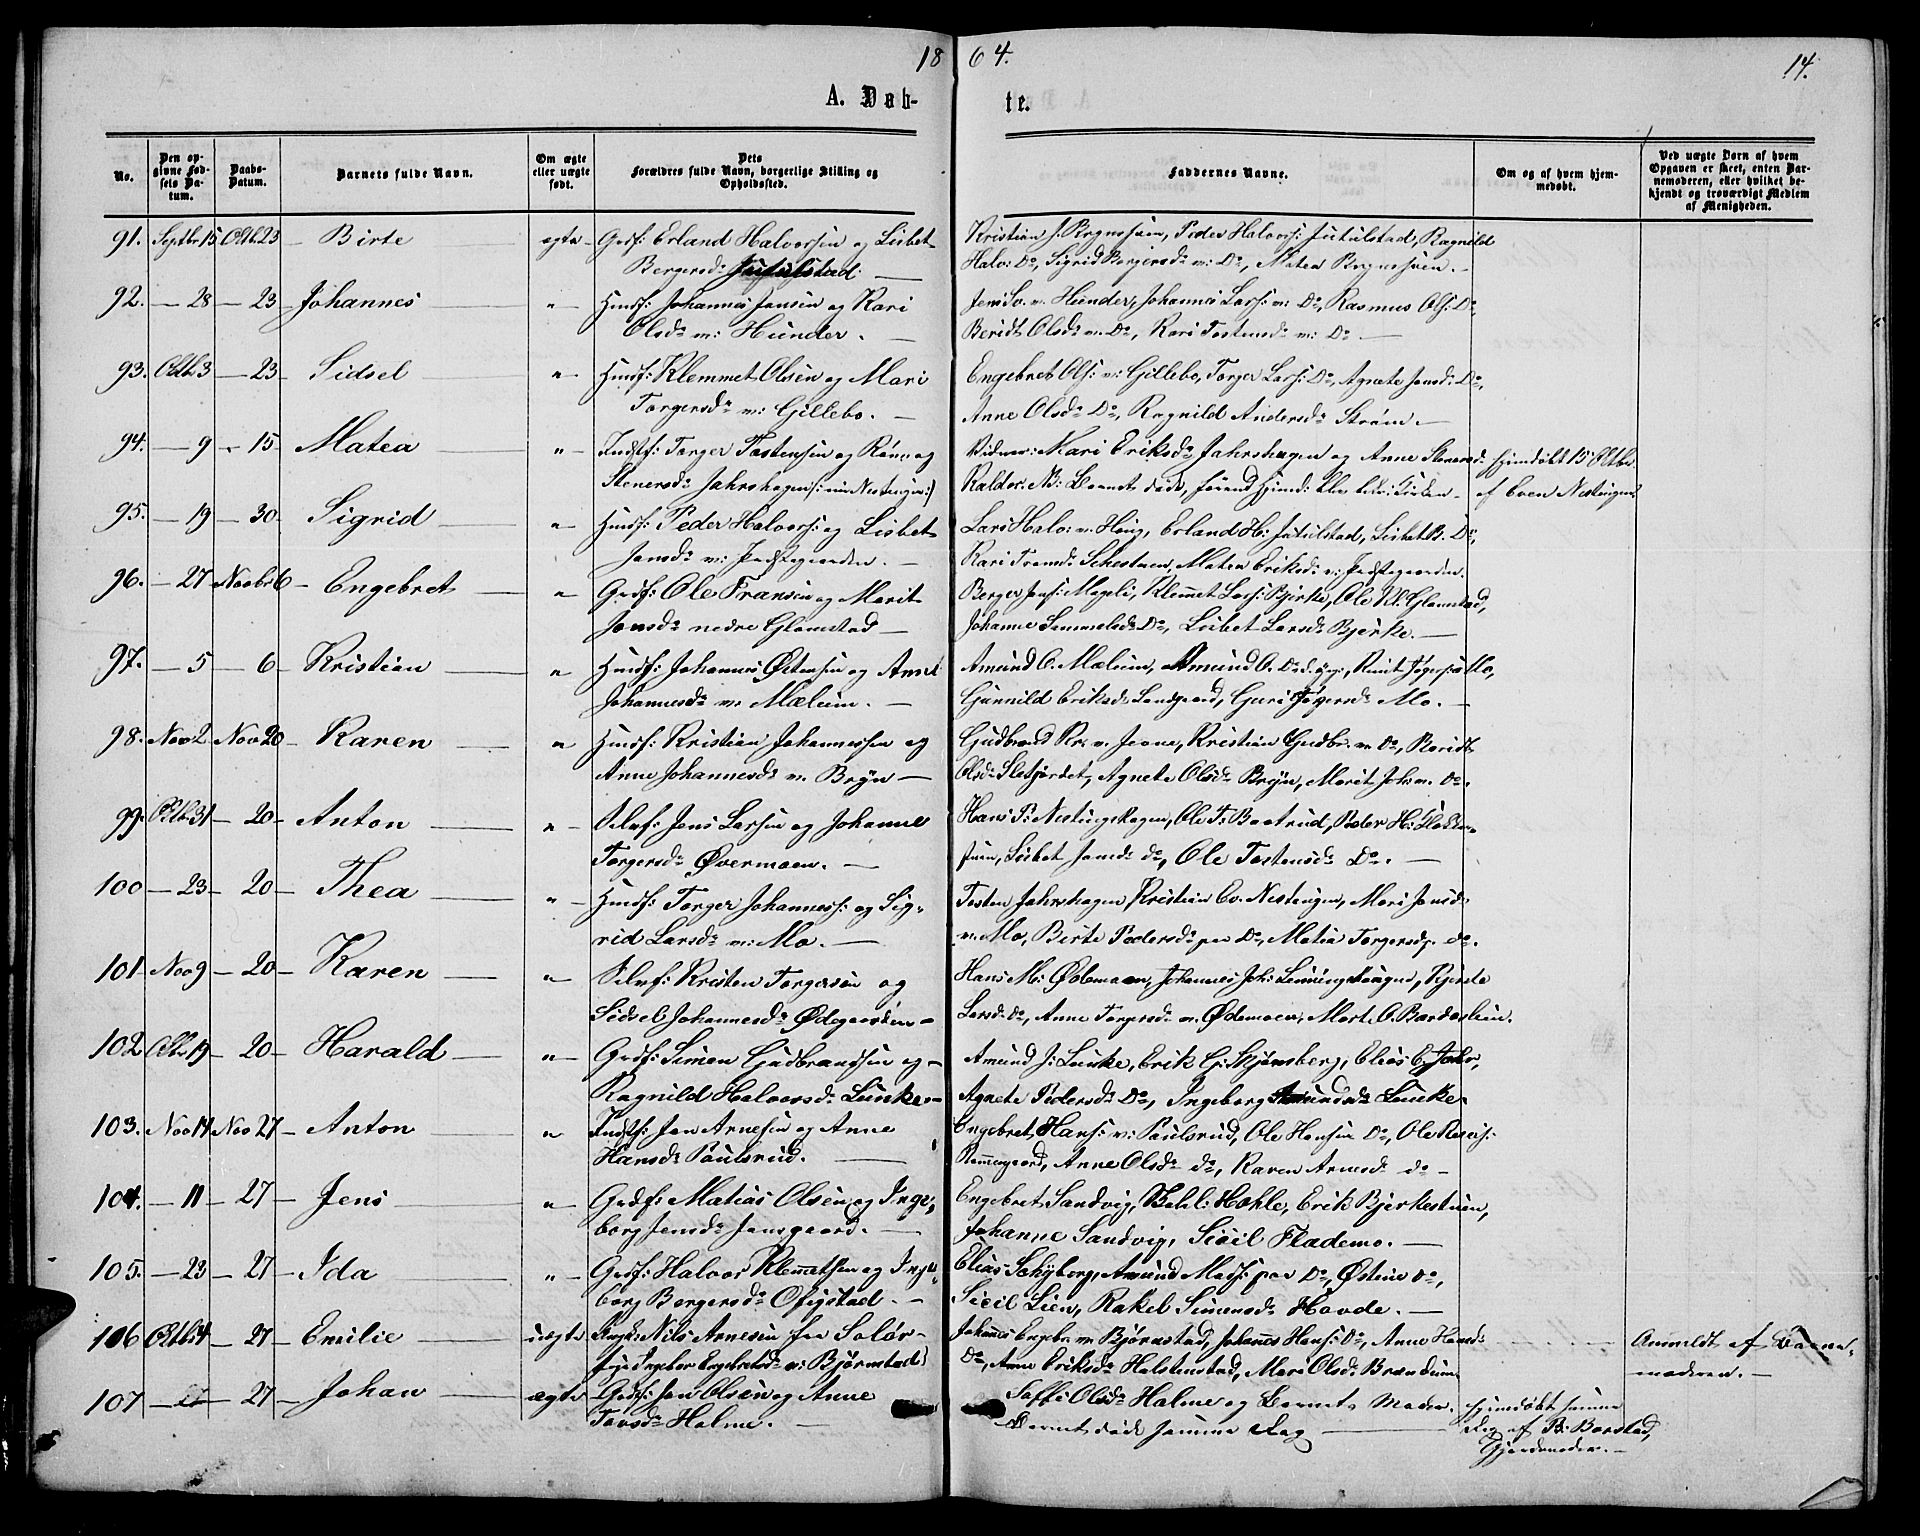 18 64. 14.
A. Døb- te.
No.
Den opgivne Fødsels Datum.
Daabs-Datum.
Barnets fulde Navn.
Om ægte eller uægte født.
Dets Forældres fulde Navn, borgerlige Stilling og Opholdssted.
Faddernes Navne.
Om og af hvem hjemmedøbt.
Ved uægte Børn af hvem Opgaven er skeet, enten Barnemoderen, eller hvilket bekjendt og troværdigt Medlem af Menigheden.
91. Septbr 15 Oktb 23 Birte ægte Grdf: Erland Halvorsen og Lisbet
Bergersdr Jutulstad
Peder Halvors: Jutulstad, Ragnild
Halv: Do, Sigrid Bergersdr m: Do, Matea
92. 28 23 Johannes " Husf: Johannes Jensen og Kari
Olsdr m: Hunder.
Jens m: Hunder, Johannes Lars: m: Do, Rasmus Ols: Do
Beridt Olsdr m: Do, Kari Tostensdr m: Do
93. Oktb 3 23 Sidsel " Husf: Klemmet Olsen og Mari
Torgersdr m: Gillebo.
Engebret Ols: m: Gillebo, Torger Lars: Do, Agnete Jensdr Do,
Anne Olsdr Do, Ragnild Andersdr Strøm
94. 9 15 Matea " Indstf: Torger Tostensen og Rønn og
Stenersdr Jahrshagen
Vidner: Mari Eriksdr Jahrshagen og Anne Stenersdr
Barnet døde, førend
hjemdøbt 15 Oktbr
af Even Nestingen
95. 19 30 Sigrid " Husf: Peder Halvors: og Lisbet
Jensdr m: Prestegaarden.
Lars Halv: m: Haug, Erland H: Jutulstad, Lisbet B. Do,
Kari Matea Eriksdr m: Prestegaarden.
96. 27 Novbr 6 Engebret " Grdf: Ole Fransen og Marit
Jonsdr nedre Glomstad
Berger Jens: Mageli, Klemmet Lars: Bjerke, Ole Kl: Glomstad,
Johanne Simmelsdr Do, Lisbet Larsdr Bjerke.
97. 5 6 Kristian " Husf: Johannes Østensen og Anne
Johannesdr m: Mælum.
Amund O. Mælum, Amund O. Do Mo,
Gunnild Eriksdr Landgaard, Guri Mo.
98. Nov 2 Nov 20 Karen " Husf: Kristian Johannessen og
Anne Johannesdr m: Bryn
Gudbrand Kr: m: Kristian Gudbr: m: Do, Beridt
Olsdr Sletjordet, Agnete Olsdr Bryn, Marit Joh: m: Do.
99. Oktb 31 20 Anton " Selvf: Jens Larsen og Johanne
Torgersdr Øvermoen.
Hans P: Nestingshagen, Ole T: Baatrud, Peder H:
Lisbet Jensdr do, Ole Tostensdr Do.
100 23 20 Thea " Husf: Torger Johanness: og Sig-
rid Larsdr m: Mo.
Tosten Jahrshagen Kristian Ev. Nestingen, Mari Jensdr
m. Mo, Birte Pedersdr paa Do, Matia Torgersdr do.
101 Nov 9 20 Karen " Selvf: Kristen Torgersen og
Sidsel Johannesdr Ødegaarden
Hans M: Ødemoen, Johannes Joh: Kjerste
Larsdr do, Anne Torgersdr m: Ødemoen, Marte O. Bardaslien.
102 Oktb 19 20 Harald " Grdf: Simen Gudbrandsen og
Ragnild Halvorsdr Lunke
Amund J: Lunke, Erik G: Skjønsberg, Elias E. Jahr,
Agnete Pedersdr Do, Ingeborg Amundsdr Lunke.
103. Nov 14 Nov 27 Anton " Indstf: Jon Arnesen og Anne
Hansdr Paulsrud.
Engebret Hans: m: Paulsrud, Ole Hansen Do, Ole
Anne Olsdr do, Karen Arnesdr do
104. 11 27 Jens " Grdf: Matias Olsen og Inge-
borg Jensdr Jensgaard.
Engebret Sandvig, Hohle, Erik Bjerkestuen,
Johanne Sandvig, Sicil Flademo.
105. 23 27 Ida " Grdf: Halvor Klemmetsen og Inge-
borg Bergersdr Ofigstad.
Elias Schyberg, Amund Mads: paa Do, Østine do,
Sicil Lien, Rakel Simensdr Hovde.
106 Oktb 4 27 Emilie uægte Ungk: Nils Arnesen fra Solør
Pige Ingebor Engebretsdr m: Bjørnstad
Johannes Engebr. m: Bjørnstad, Johannes Hans: Do, Anne Hansdr
Do, Anne Eriksdr Halstenstad, Mari Olsdr
Anmeldt af Barne-
moderen.
107 27 Johan ægte Grdf: Jon Olsen og Anne
Tovsdr Holme.
Olsdr Holme og Barnets Moder.
Barnet døde samme Dag
hjemdøbt samme
Dag af B: Baastad,
Gjordemoder.